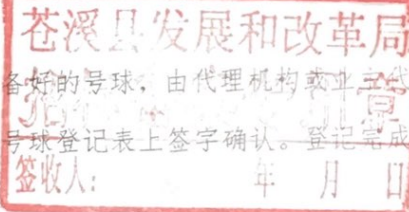 苍溪县发展和改革局
备好的号球，由代理机构或业主代
号球登记表上签字确认。登记完成
签收人： 年 月 日